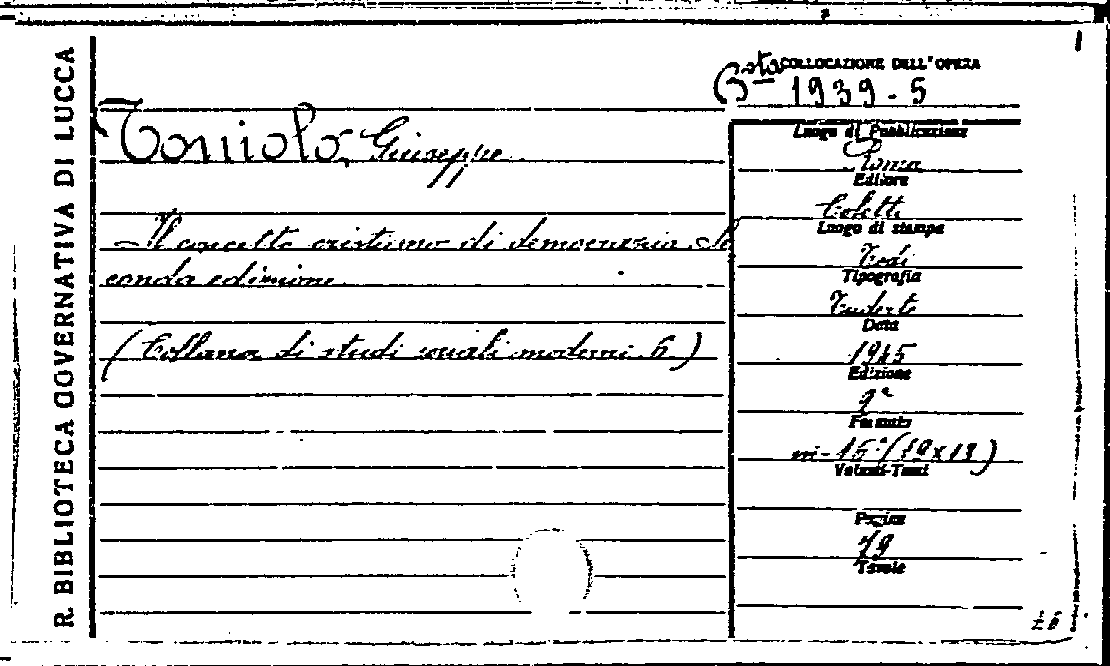 R. BIBLIOTECA GOVERNATIVA DI LUCCA
COLLOCAZIONE DELL'OPERA
Bsta 1939 - 5
Toniolo, Giuseppe
Il concetto cristiano di democrazia. Se
conda edizione
(Collana di studi sociali moderni 6)
Luogo di Pubblicazione
Roma
Editore
Coletti
Luogo di stampa
Todi
Tipografia
Tuderte
Data
1945
Edizione
2ª
Formato
in-16°(19x13)
Volumi-Tomi
Pagine
79
Tavole